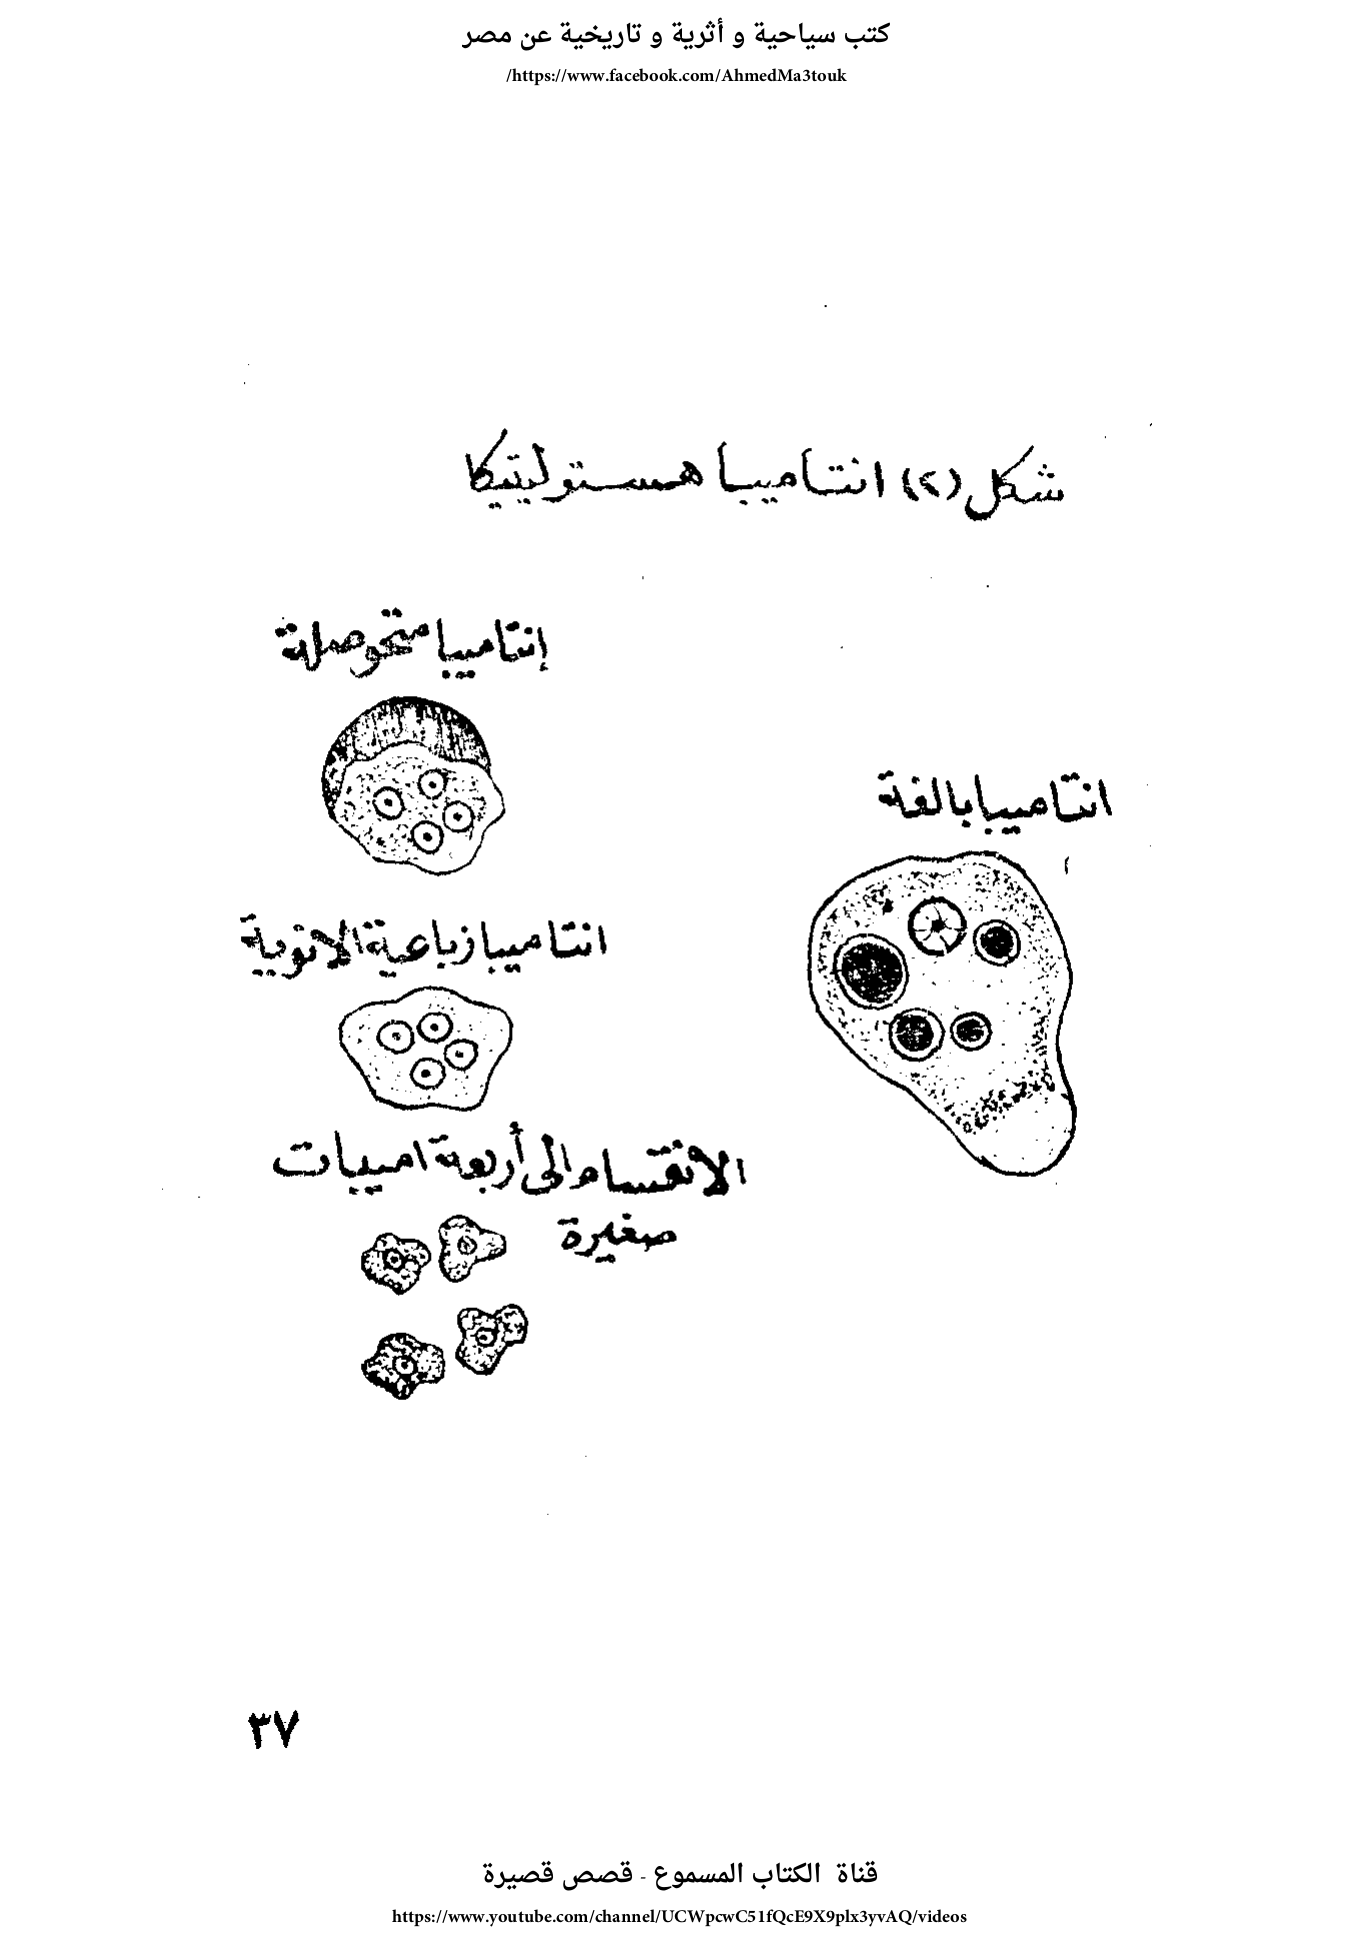 كتب سياحية و أثرية و تاريخية عن مصر
https://www.facebook.com/AhmedMa3touk/
شكل (٢) انتاميبا هستوليتيكا
إنتاميبا متحوصلة
انتاميبا بالغة
انتاميبا رباعية الانوية
الانقسام الى أربعة اميبات
صغيرة
٣٧
قناة الكتاب المسموع - قصص قصيرة
https://www.youtube.com/channel/UCWpcwC51fQcE9X9plx3yvAQ/videos